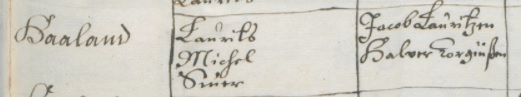 Haaland
Laurits
Michel
Siuer
Jacob Lauritzen
Halvor Torgiußen